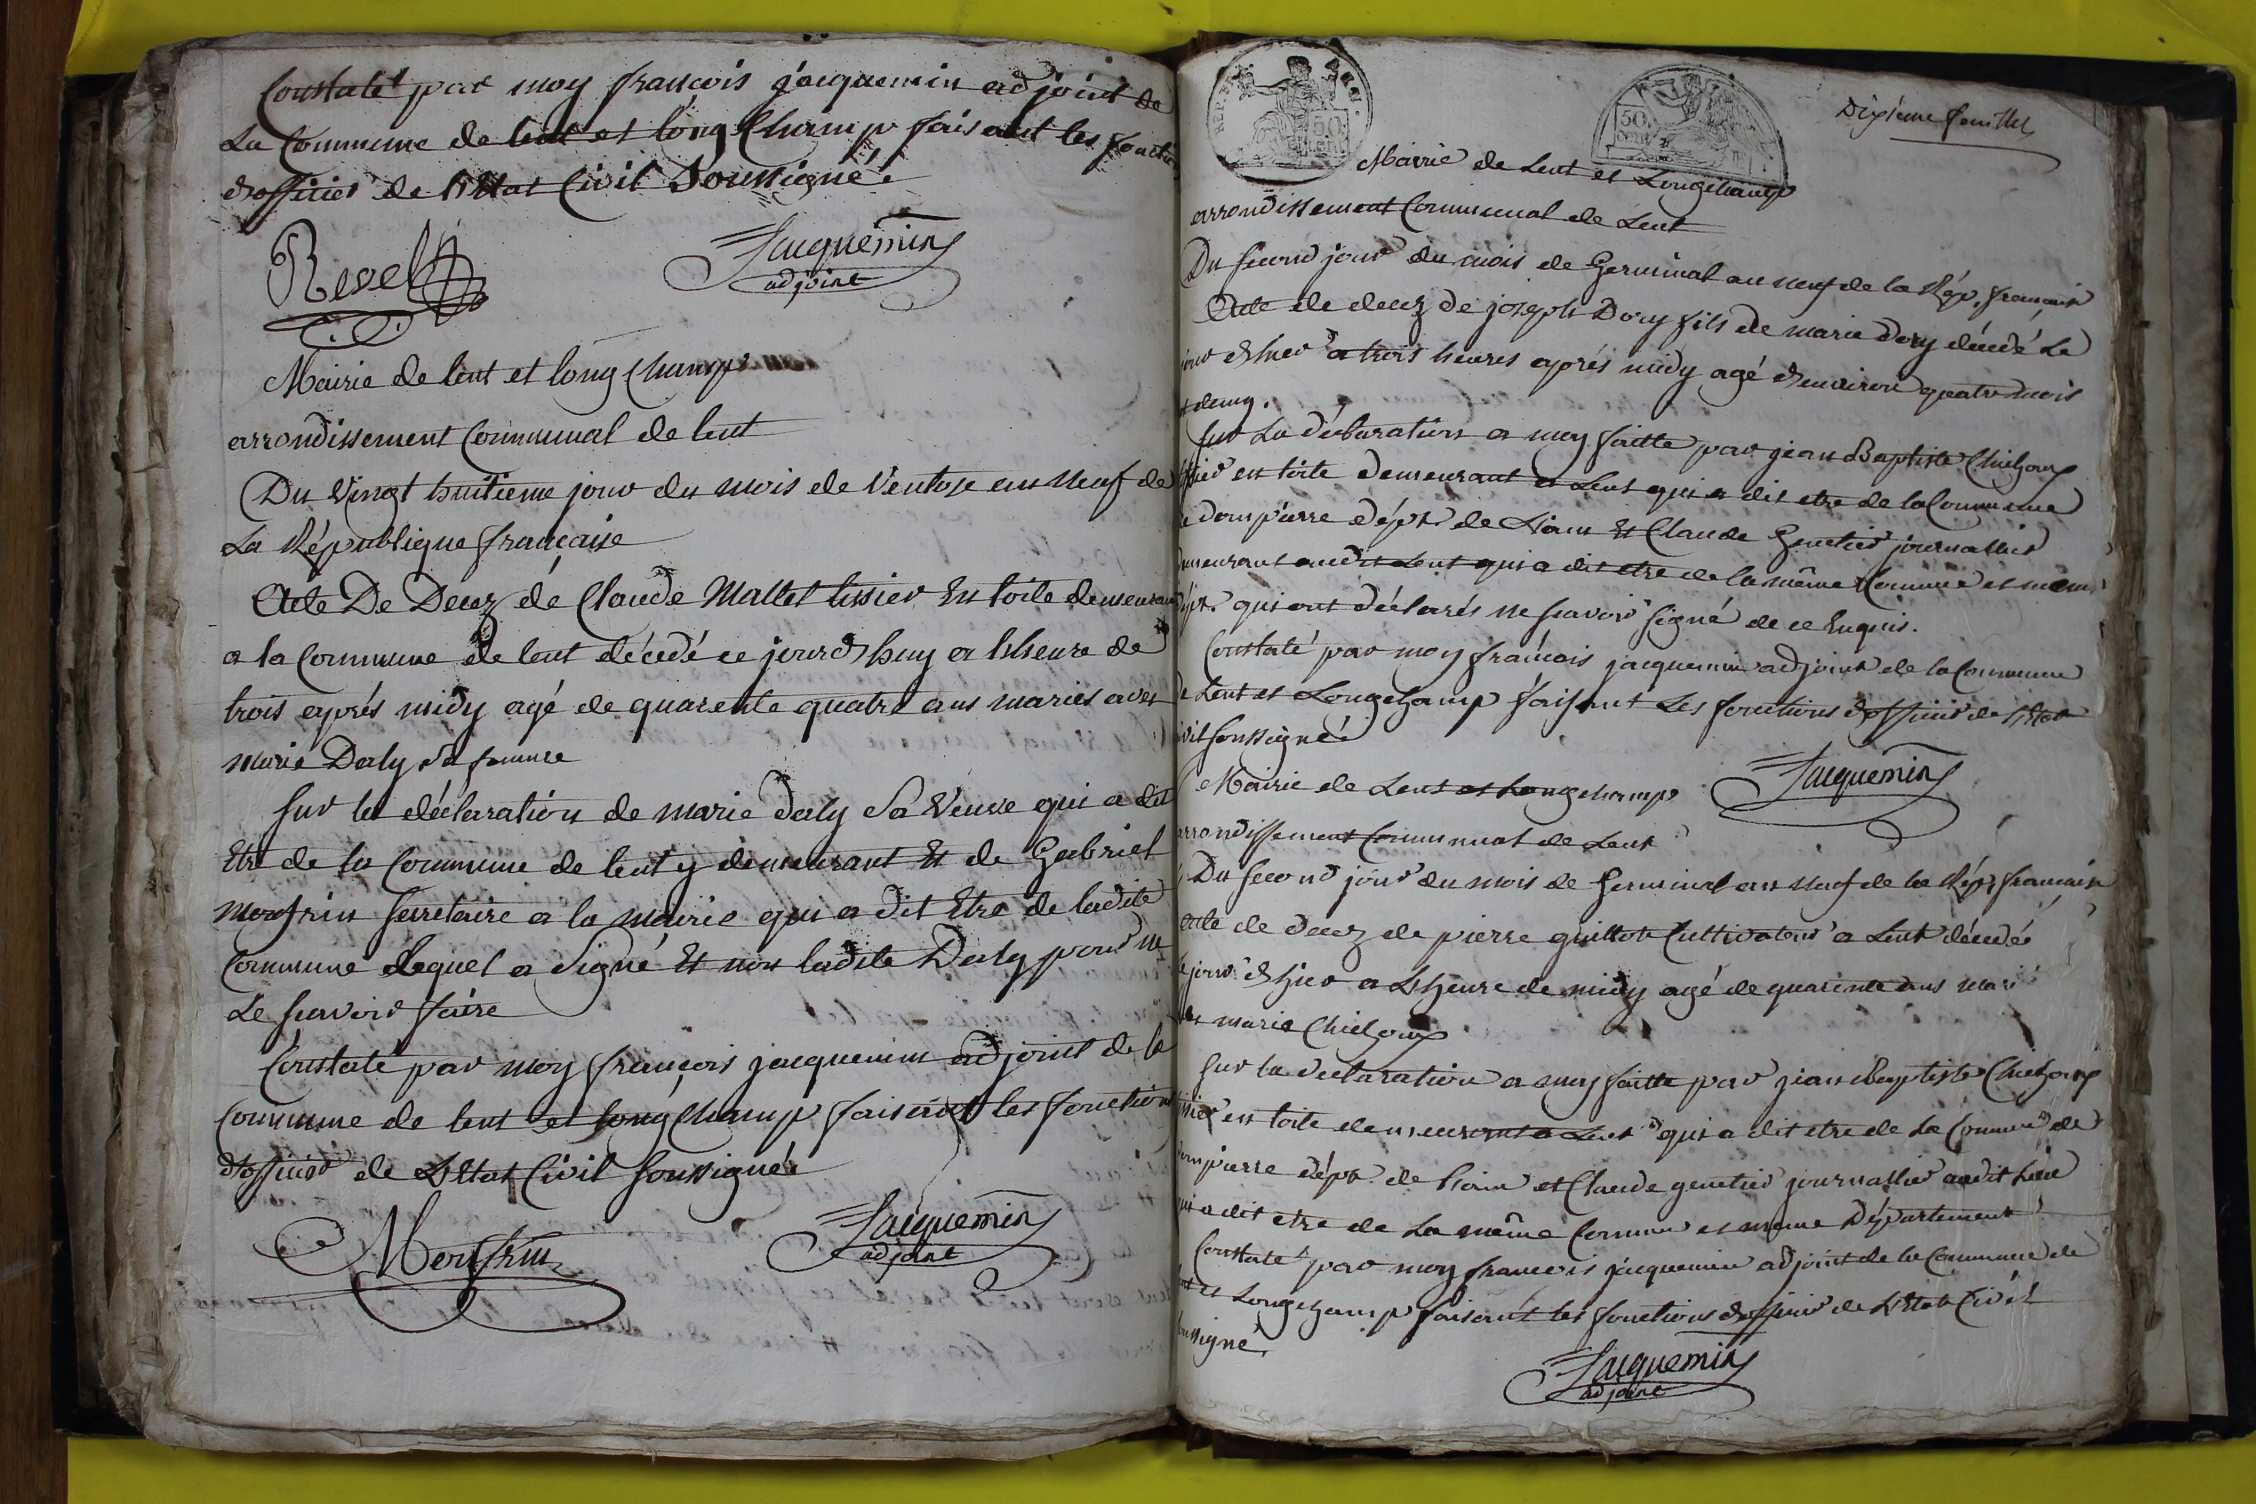 Constaté par moy françois jacquemin adjoint de
La Commune de lent et long Champ faisant les fonction
d'officier de l'Etat Civil Soussigné
Revel
Jacquemin
adjoint
Mairie de lent et long Champ
arrondissement Communal de lent
Du Vingt huitieme jour du mois de Ventose an neuf de
La République française
Acte De Decez de Claude Mallet tissier En toile demeurant
a la Commune de lent décédé ce jourd'huy a l'heure de
trois après midy agé de quarente quatre ans mariés avec
marie Daly Sa femme
Sur la déclaration de marie daly Sa Veuve qui a dit
Etre de la Commune de lent y demeurant Et de Gabriel
secretaire a la mairie qui a dit Etre de ladite
Commune lequel a Signé Et non ladite Daly pour ne
Le scavoir faire
Constaté par moy françois jacquemin adjoint de la
Commune de lent et long Champ faisant les fonction
d'officier de L'Etat Civil Soussigné
Jacquemin
adjoint
REP. FRA.
50
cent.
50
cent.
Dixieme feuillet
Mairie de Lent et Longchamp
arrondissement Communal de Lent
Du second jour du mois de Germinal an neuf de la Rép. francaise
Acte de decez de joseph Dory fils de marie dory décédé Le
jour d'hier a trois heures après midy agé d'environ quatre mois
et demy.
Sur La déclaration a moy faitte par jean Baptiste Chielzoux
tissier en toile demeurant a Lent qui a dit etre de la Commune
de dompierre dépt. de L'ain Et Claude Genetier journallier
demeurant audit Lent qui a dit etre de la même Commune et meme
dépt. qui ont déclarés ne scavoir signé de ce Enquis.
Constaté par moy françois jacquemin adjoint de la Commune
de Lent et Longchamp faisant Les fonctions d'officier de l'Etat
civil soussigné
Jacquemin
Mairie de Lent et Longchamp
arrondissement Communal de Lent
Du second jour du mois de Germinal an neuf de la Rép. francaise
acte de decez de pierre guillot Cultivateur a Lent décédé
le jour d'hier a L'heure de midy agé de quarente ans mari
de marie Chielzoux
Sur la declaration a moy faitte par jean Baptiste Chielzoux
tissier en toile demeurant a Lent qui a dit etre de La Commune de
dompierre dépt. de l'ain et Claude genetier journallier audit Lieu
qui a dit etre de La même Commune et meme Département
Constaté par moy francois jacquemin adjoint de la Commune de
Lent et Longchamp faisant les fonctions d'officier de L'Etat Civil
soussigné
Jacquemin
adjoint